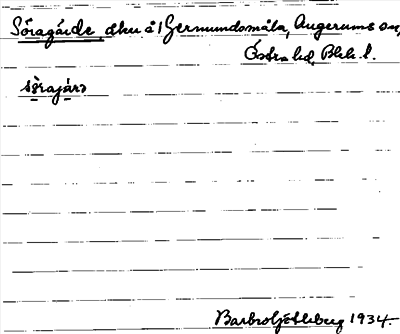 Söragärde, åku å 1 Germundsmåla, Augerums sn,
Östra hd, Blek. l.
sö̀rajárə
Barbro Götleberg 1934.